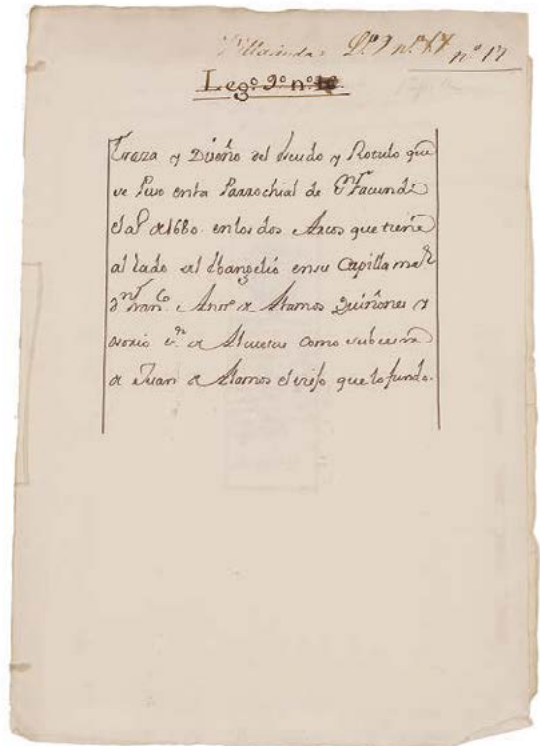 Lº 9 nº 17
nº 17
Legº 9º nº
Traza y Diseño del Escudo y Rotulo que
se puso enla Parrochial de Sn Facundo
el aº de 1680. en los dos Arcos que tiene
al lado del Evangelio en su Capilla mor
Dn Franco Antº de Alamos Quiñones y
Osorio como subcesor
de Juan de Alamos el viejo que lo fundo.